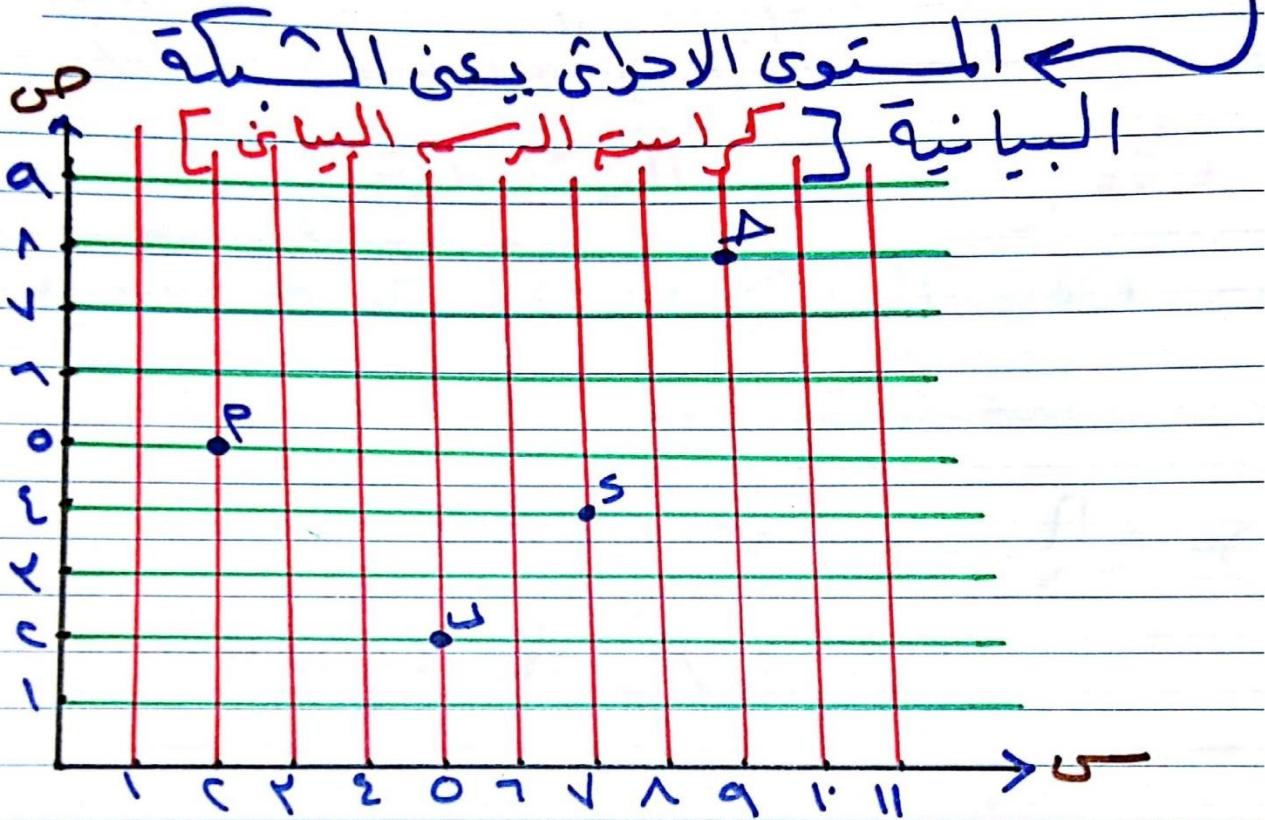 المستوى الاحداثى يعنى الشبكة
البيانية [كراسة الرسم البيانى]
ص
٩
٨
٧
٦
٥
٤
٣
٢
١
ﺟ
م
د
ب
١ ٢ ٣ ٤ ٥ ٦ ٧ ٨ ٩ ١٠ ١١
س